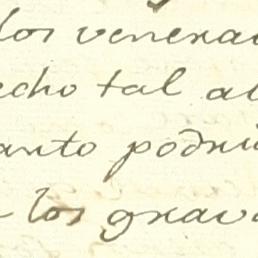 los venerad
echo tal al
anto podri
a los grava